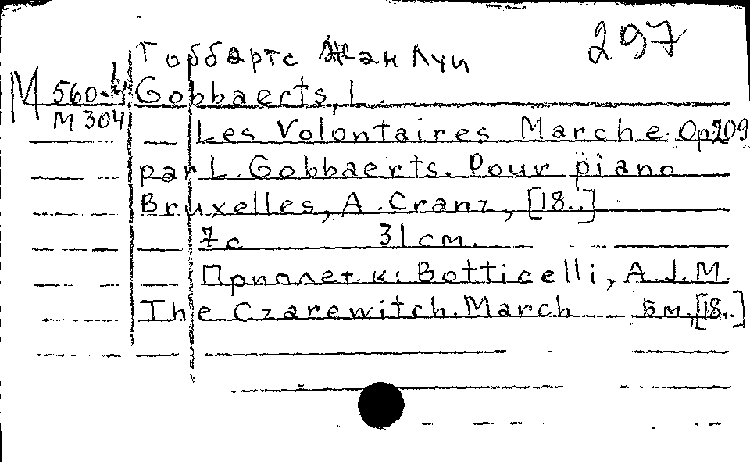 297
Гоббартс Жан Луи
М 560-4 Gobbaerts, L.
М 304
Les Volontaires Marche. Op 209
par L. Gobbaerts. Pour piano
Bruxelles, A. Cranz, [18..]
7 с 31 см.
Приплет к: Botticelli, A. J. M.
The Czarewitch. March б м, [18..]